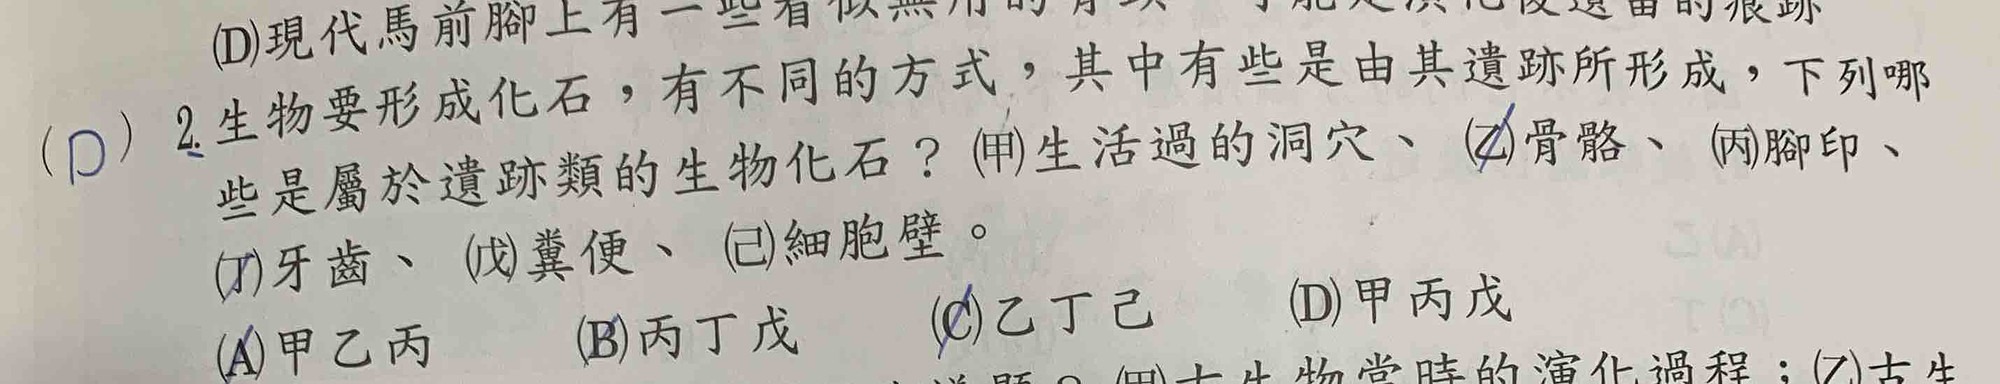 (D)現代馬前腳上有一些看似無用的骨頭，可能是演化後遺留的痕跡
(D) 2.生物要形成化石，有不同的方式，其中有些是由其遺跡所形成，下列哪
些是屬於遺跡類的生物化石？(甲)生活過的洞穴、(乙)骨骼、(丙)腳印、
(丁)牙齒、(戊)糞便、(己)細胞壁。
(A)甲乙丙 (B)丙丁戊 (C)乙丁己 (D)甲丙戊
(甲)古生物當時的演化過程；(乙)古生